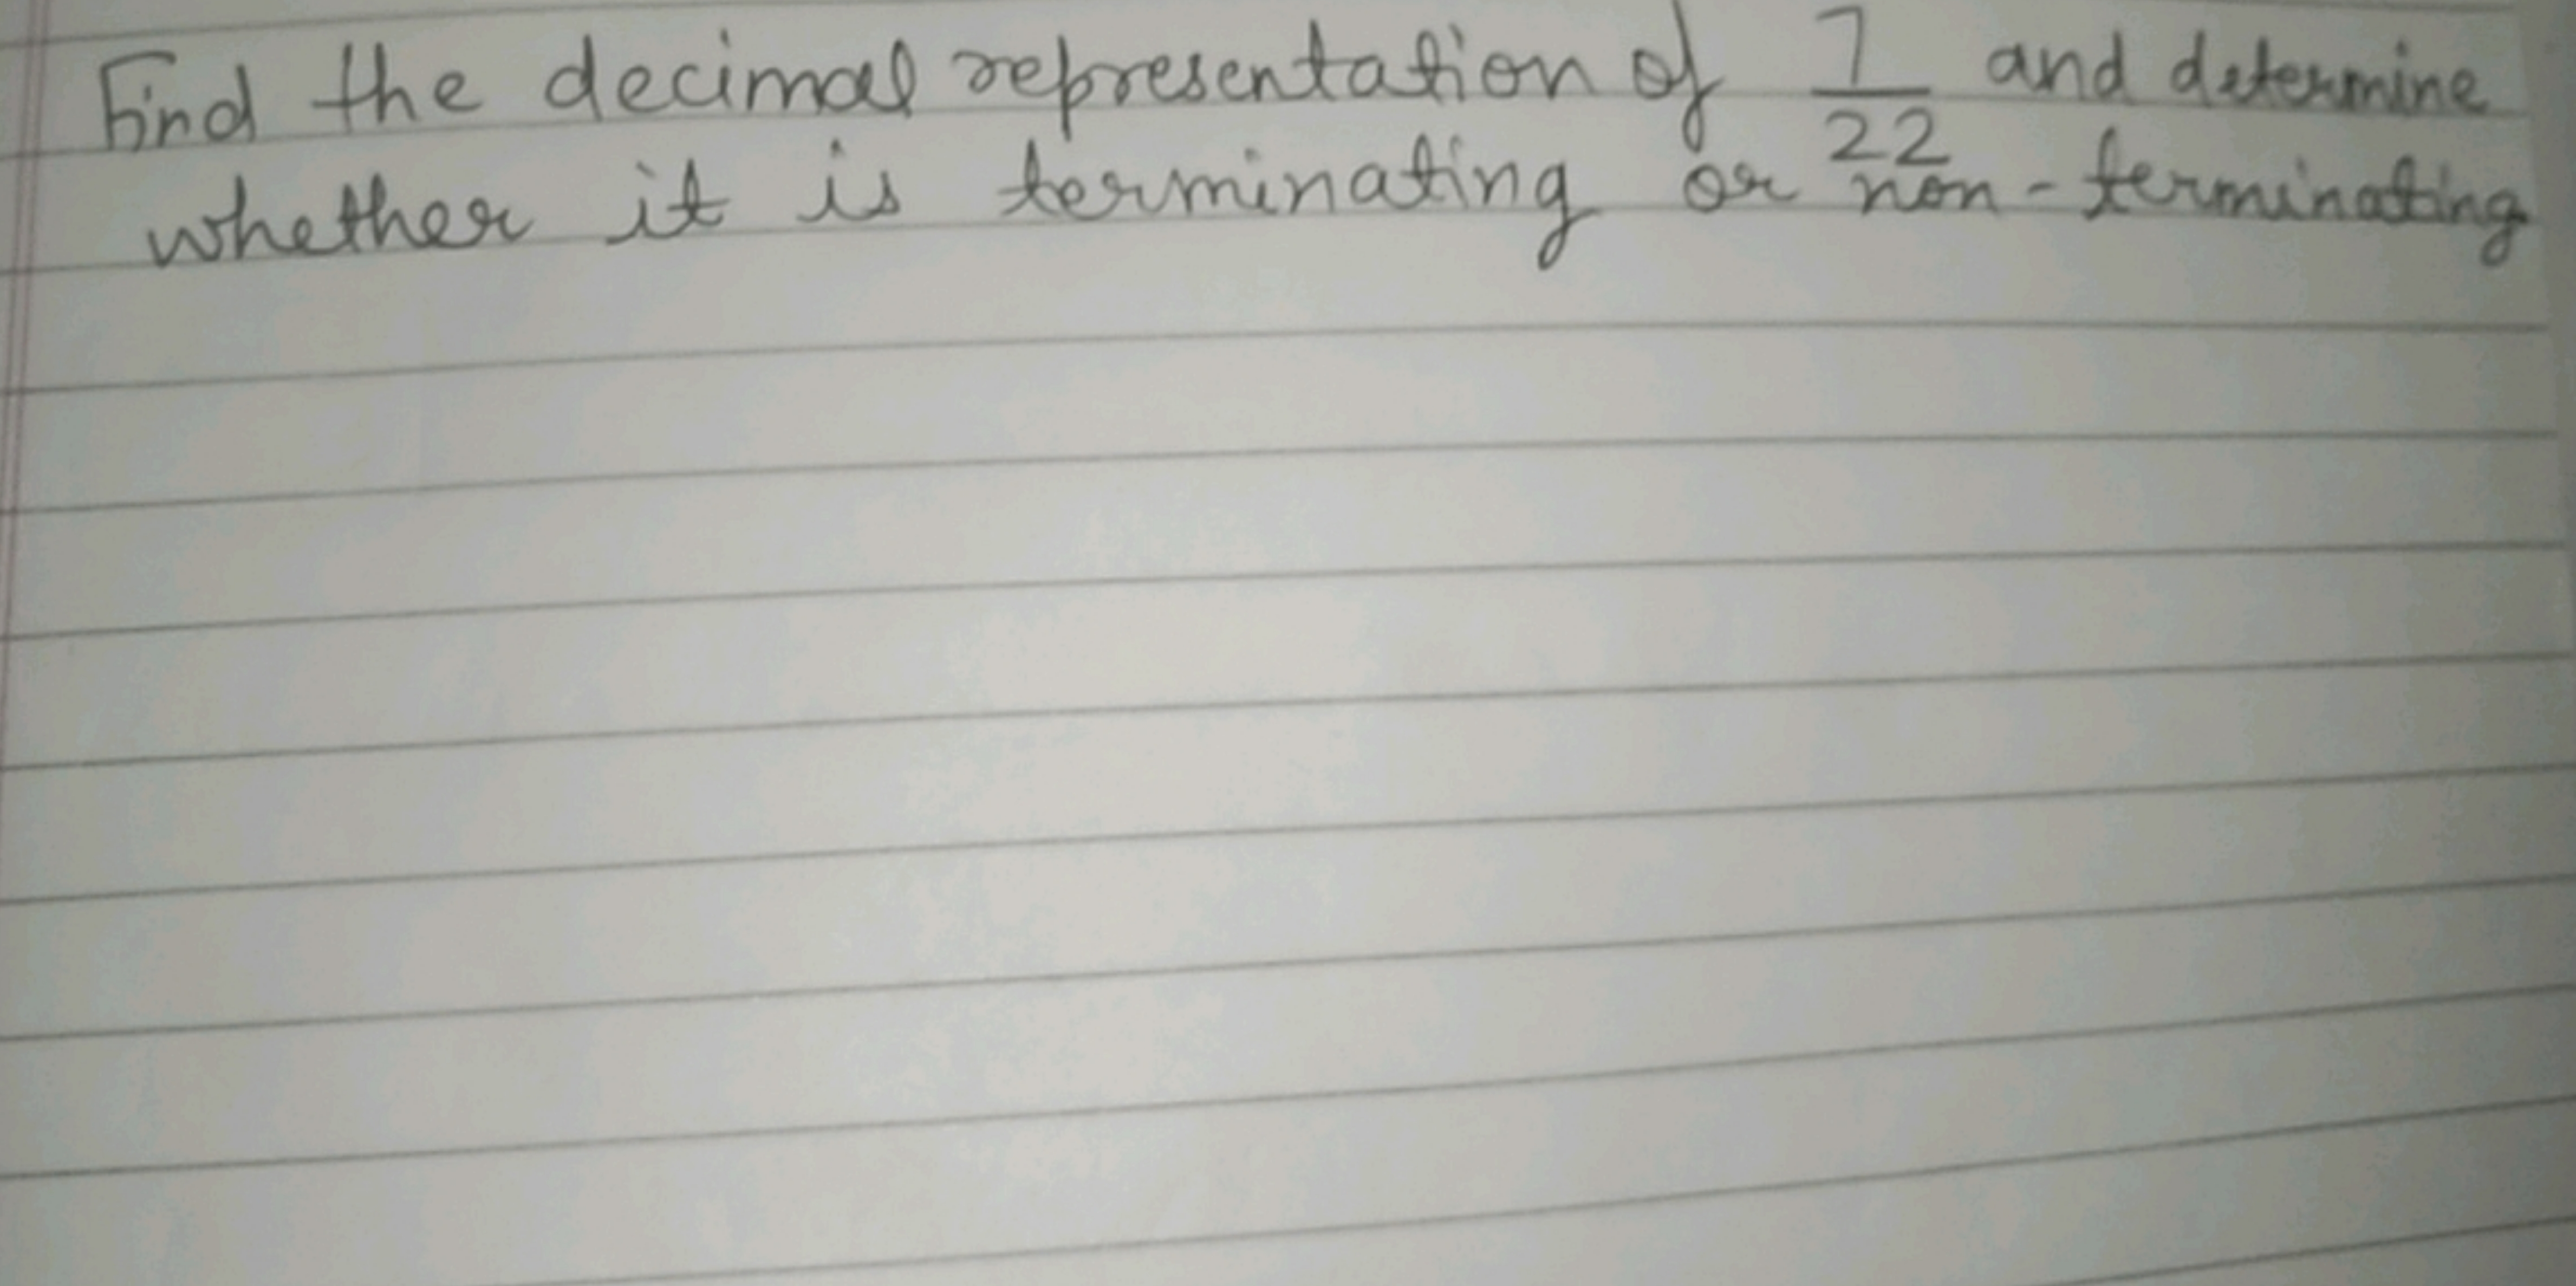 Find the decimal representation of 7/22 and determine
whether it is terminating or non-terminating